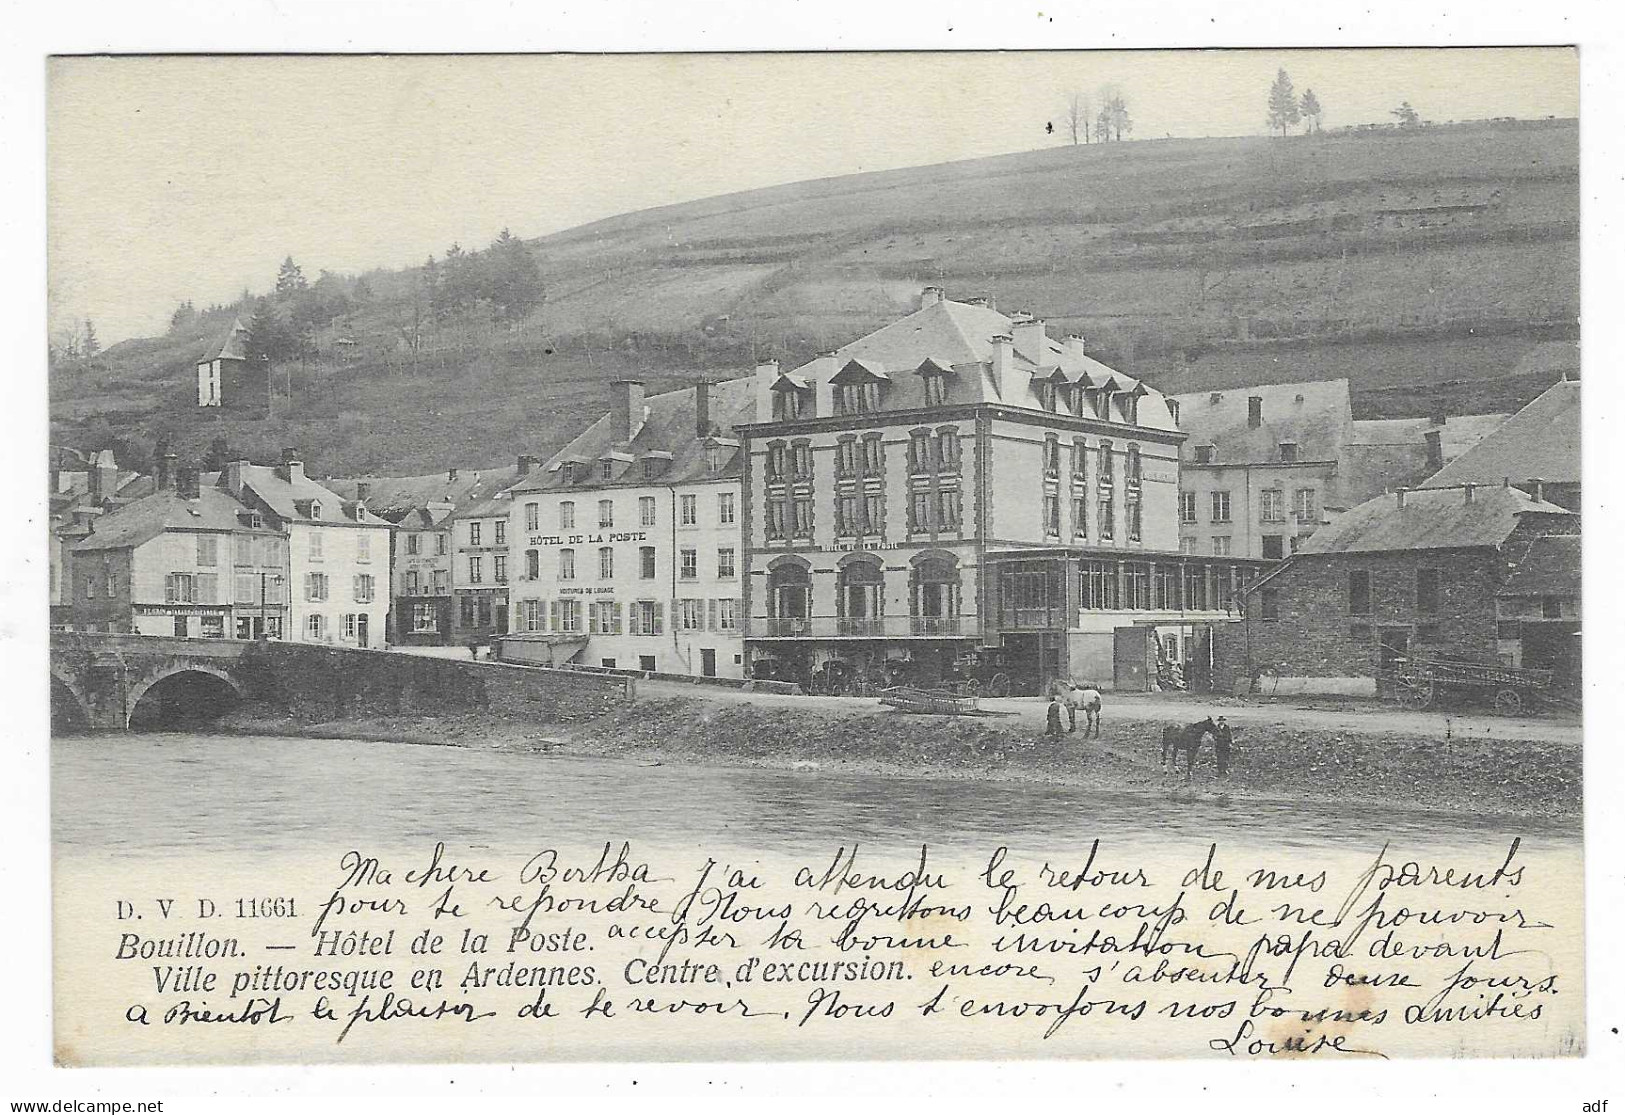 HÔTEL DE LA POSTE
VOITURES DE LOUAGE
HOTEL DE LA POSTE
Ma chere Bertha J'ai attendu le retour de mes parents
D. V. D. 11661 pour te repondre, Nous regrettons beaucoup de ne pouvoir
Bouillon. — Hôtel de la Poste. accepter ta bonne invitation papa devant
Ville pittoresque en Ardennes. Centre d'excursion. encore s'absenter deux jours.
a Bientôt le plaisir de te revoir. Nous t'envoyons nos bonnes amitiés
Louise
delcampe.net
adf